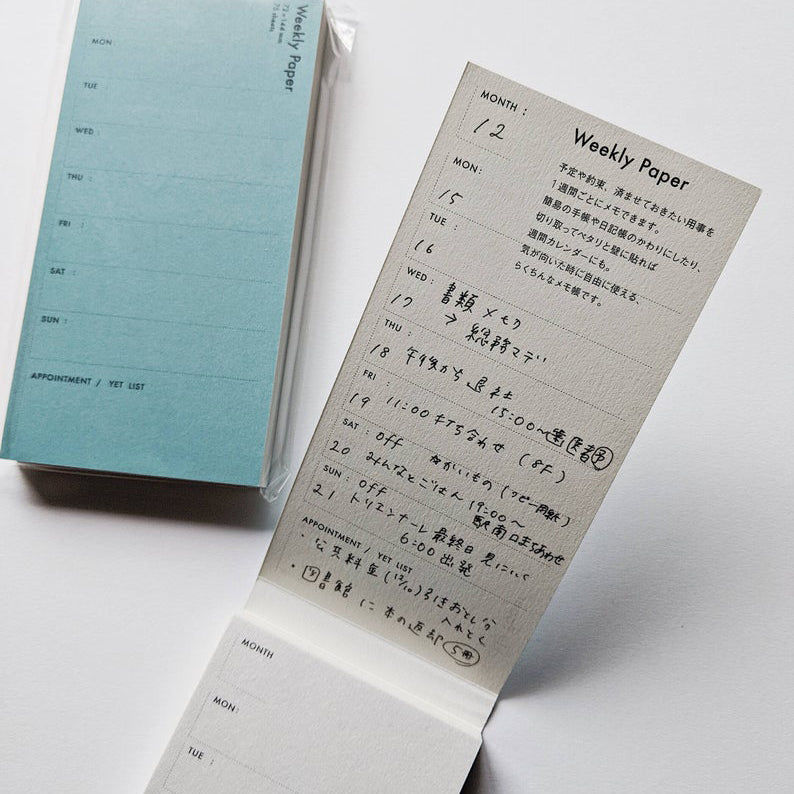 Weekly Paper
73×144 mm
75 sheets
MON
TUE
WED :
THU :
FRI :
SAT :
SUN :
APPOINTMENT / YET LIST
MONTH :
12
Weekly Paper
予定や約束、済ませておきたい用事を
1週間ごとにメモできます。
簡易の手帳や日記帳のかわりにしたり、
切り取ってペタリと壁に貼れば
週間カレンダーにも。
気が向いた時に自由に使える、
らくちんなメモ帳です。
MON:
15
TUE :
16
WED :
17
書類〆切
→ 総務マデ
THU :
18
午後から退社
15:00〜歯医者予
FRI :
19
11:00 打ち合わせ (8F)
SAT :
20
off かいもの (コピー用紙)
みんなとごはん 19:00〜
駅南口まちあわせ
SUN :
21
off
トリエンナーレ最終日 見にいく
6:00 出発
APPOINTMENT / YET LIST
・公共料金 (12/10) 引きおとし
入れとく
・図書館に本の返却 5冊
MONTH
MON:
TUE :